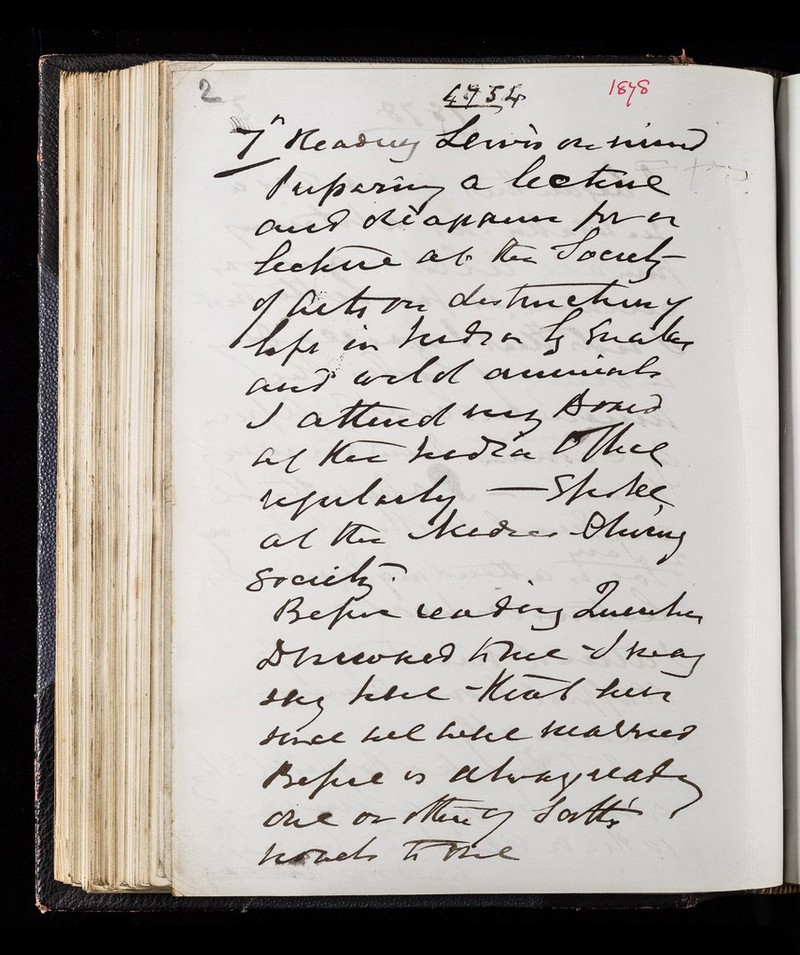 2 4754 1878
7th Reading Lewis on mind
Preparing a lecture
and diagram for a
lecture at the Society
of Arts on destruction of
life in India by Snakes
and wild animals
I attend my Board
at the India Office
regularly — Spoke
at the Medical
Society.
reading Quentin
Durward to me - I may
say here that ever
since we were married
is always reading
one or other of Scott's
novels to me